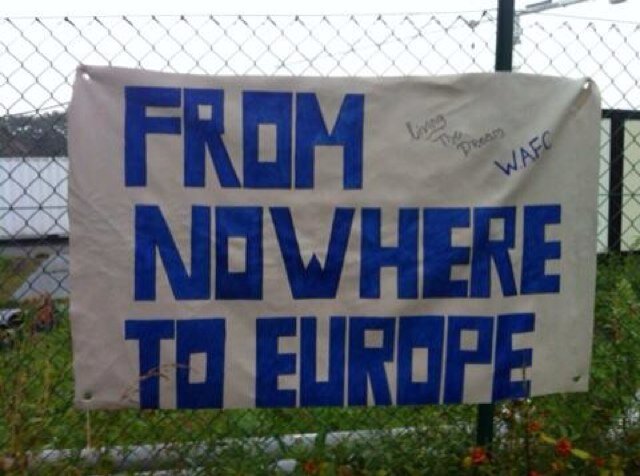 FROM
Living
The
Dream
W.A.F.C
NOWHERE
TO EUROPE